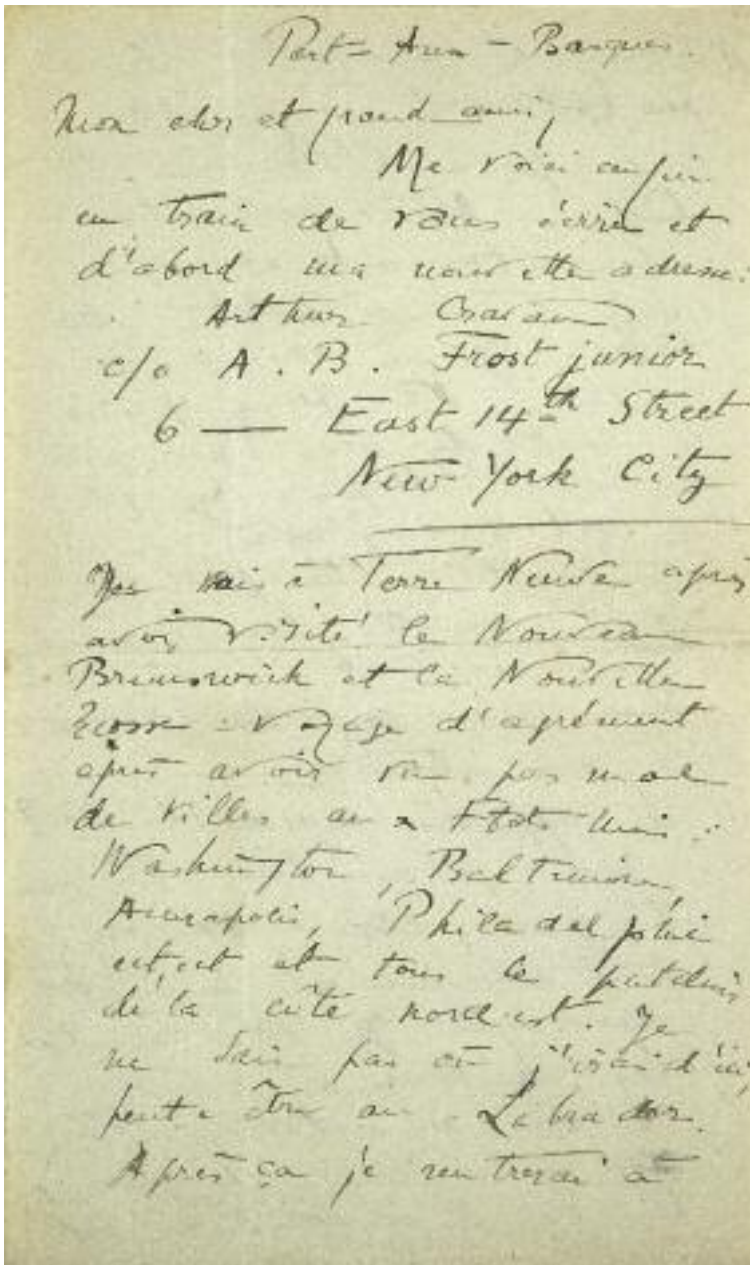 Port-Aux-Basques.
Mon cher et grand ami,
Me voici enfin
en train de vous écrire et
d'abord ma nouvelle adresse:
Arthur Cravan
c/o A. B. Frost junior
6 — East 14th Street
New York City
Je vais à Terre Neuve après
avoir visité le Nouveau
Brunswick et la Nouvelle
Ecosse - voyage d'agrément
après avoir vu pas mal
de villes aux Etats Unis:
Washington, Baltimore,
Annapolis, Philadelphie
et, et et tous les
de la côte nord est. Je
ne sais pas où j'irai d'ici,
peut-être au Labrador.
Après ça je rentrerai à